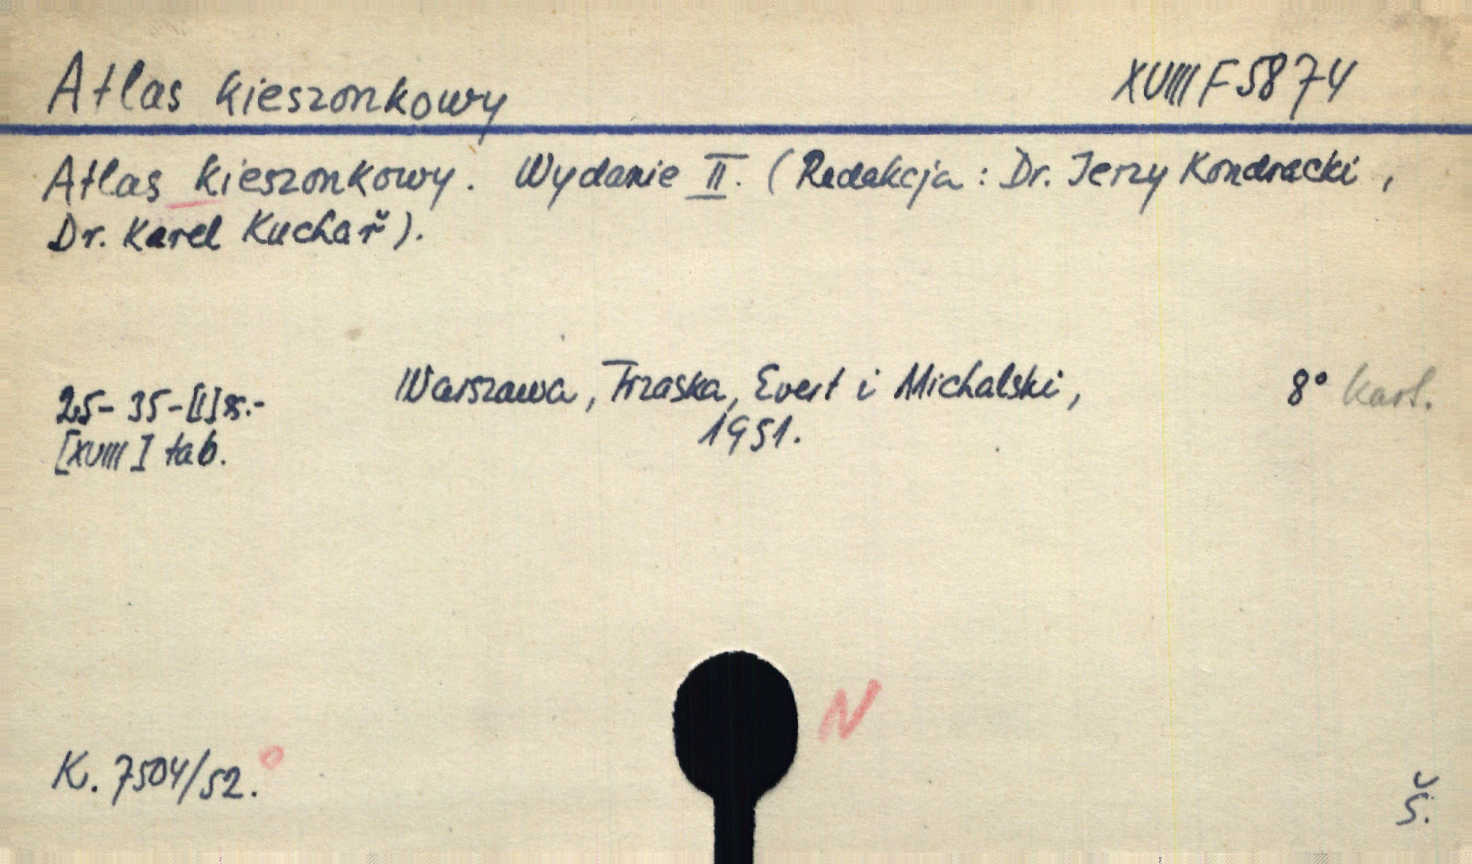 Atlas kieszonkowy XVIII F 5874
Atlas kieszonkowy. Wydanie II. (Redakcja: Dr. Jerzy Kondracki,
Dr. Karel Kuchař).
Warszawa, Trzaska, Evert i Michalski, 8° kart.
25-35-[1]s.-
1951.
[XVIII] tab.
N
K. 7504/52.
Š.